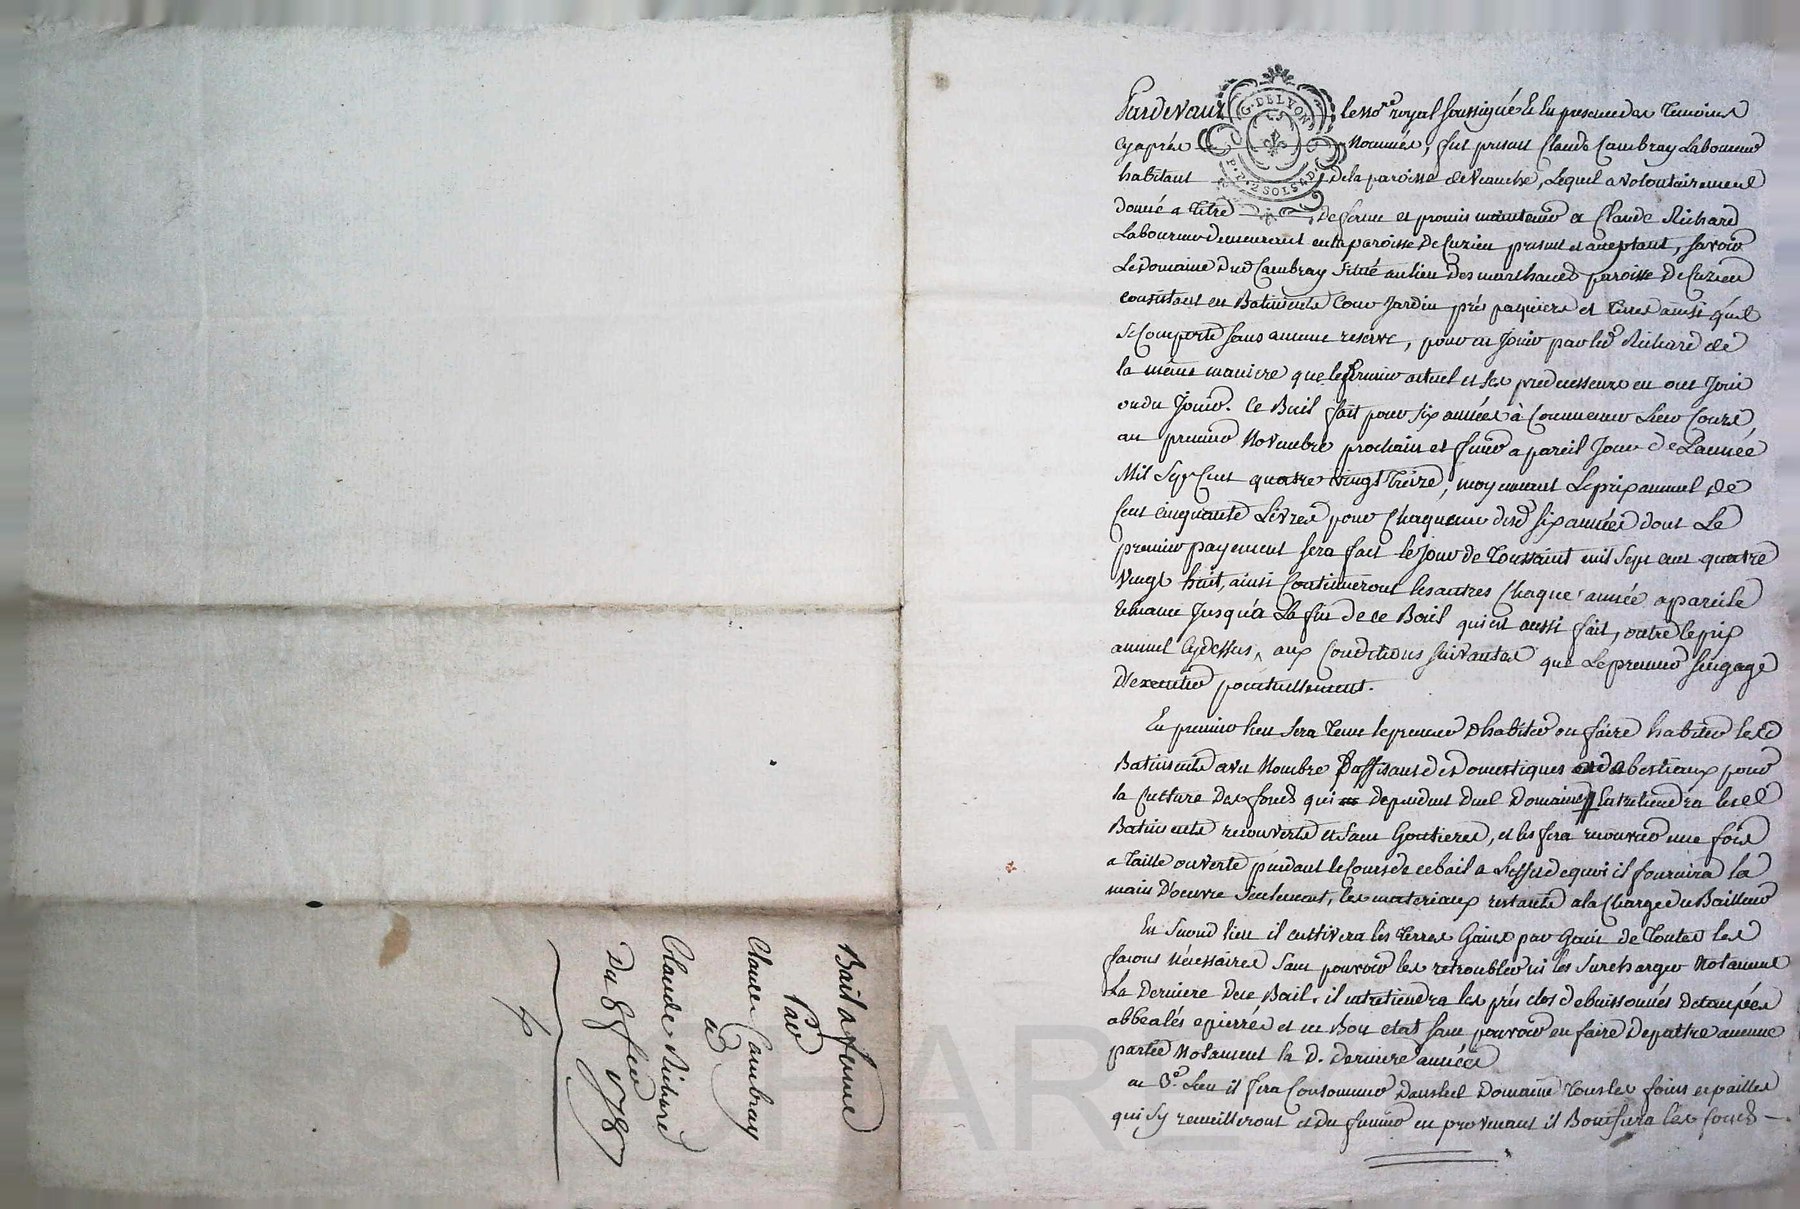 Pardevant le No.re royal soussigné et En presence des Temoins
cy après Nommés, fut present Claude Cambray Laboureur
habitant de la paroisse de Veauche, Lequel a volontairement
donné a titre de ferme et promis maintenir a Claude Richard
Laboureur demeurant en la paroisse de Cuzieu present et acceptant, savoir
Le domaine dud Cambray situé au lieu des marchands paroisse de Cuzieu
consistant en Batiments Cour Jardin prés paquiers et terres ainsi qu'il
se Comporte sans aucune reserve, pour en Jouir par led Richard de
la même maniere que le fermier actuel et ses predecesseurs en ont Joui
ou du Jouir. Ce Bail fait pour six années à Commencer Leur Cours,
au premier Novembre prochain et finir a pareil Jour de L'année
Mil Sept Cent quatre vingt treize, moyennant Le prix annuel de
Cent cinquante Livres pour Chaqueune desd six années dont Le
premier payement sera fait le Jour de Toussaint mil sept cent quatre
vingt huit, ainsi Continueront les autres Chaque année a pareile
echeance Jusqu'à La fin de ce Bail qui est aussi fait, outre le prix
annuel cy dessus, aux Conditions suivantes que Le preneur s'engage
D'executer pointuellement.
En premier lieu sera tenu le preneur d'habiter ou faire habiter lesd
Batiments avec Nombre suffisant de domestiques et de bestiaux pour
la Culture des fonds qui dependent dud Domaine, Entretiendra lesd
Batiments recouverts et sans Goutieres, et les fera recouvrir une fois
a taille ouverte pendant le Cours de ce bail a L'effet de quoi il fournira la
main D'oeuvre seulement, les materiaux restants a la Charge du Bailleur
En second lieu il cultivera les terres Gain par Gain de Toutes les
façons Nécessaires sans pouvoir les retroubler ni les surcharger Notament
La derniere de ce Bail, il entretiendra les prés clos debuissonnés detaupées
abbealés epierrés et en Bon etat sans pouvoir en faire depaitre aucune
partie Notament la d. derniere année
au 3.e Lieu il fera Consommer dans led Domaine tous les foins et pailles
qui s'y recueilleront et du fumier en provenant il Bonifiera les fonds
Bail a ferme
Par
Claude Cambray
a
Claude Richard
Du 8 fev 1788